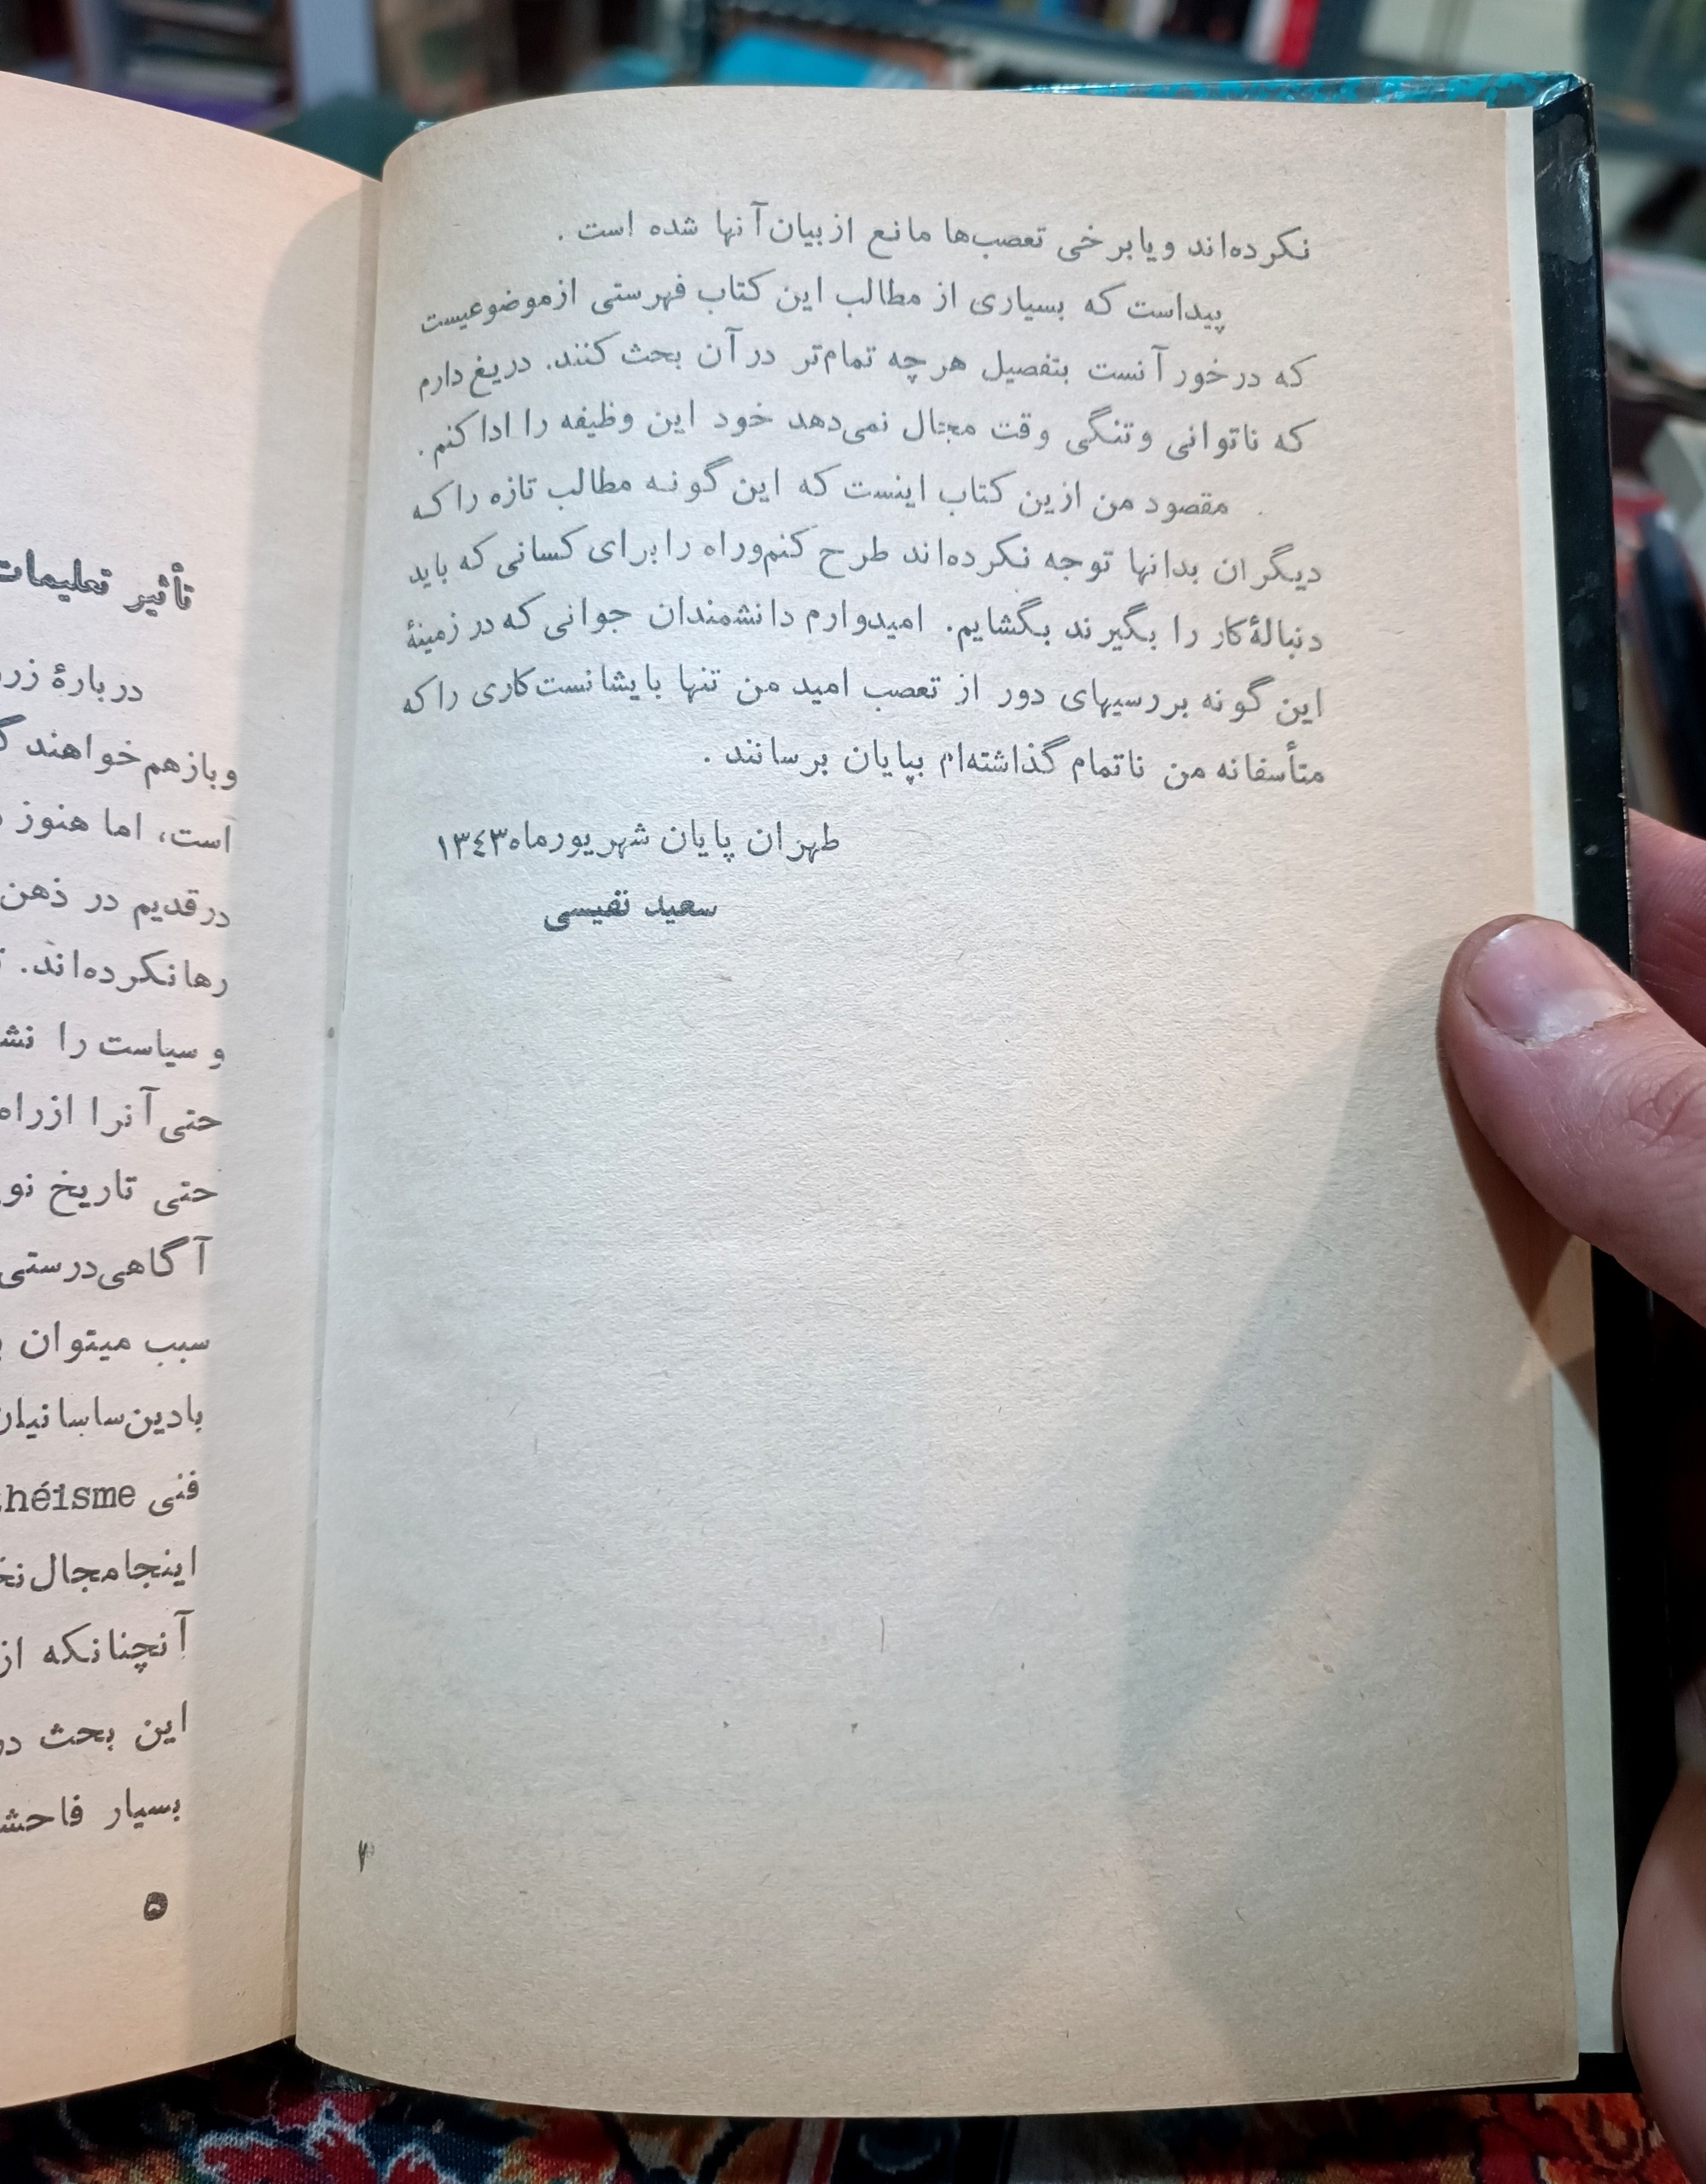 نکرده‌اند و یا برخی تعصب‌ها مانع از بیان آنها شده است .
پیداست که بسیاری از مطالب این کتاب فهرستی از موضوعیست
که در خور آنست بتفصیل هر چه تمام‌تر در آن بحث کنند. دریغ دارم
که ناتوانی و تنگی وقت مجال نمی‌دهد خود این وظیفه را ادا کنم .
مقصود من ازین کتاب اینست که این گونه مطالب تازه را که
دیگران بدانها توجه نکرده‌اند طرح کنم و راه را برای کسانی که باید
دنبالهٔ کار را بگیرند بگشایم. امیدوارم دانشمندان جوانی که در زمینهٔ
این گونه بررسیهای دور از تعصب امید من تنها بایشانست کاری را که
متأسفانه من ناتمام گذاشته‌ام بپایان برسانند .
طهران پایان شهریورماه ۱۳٤۳
سعید نفیسی
تأثیر تعلیمات
دربارهٔ
و باز هم خواهند
است، اما هنوز
در قدیم در ذهن
رها نکرده‌اند.
و سیاست را
حتی آنرا از راه
حتی تاریخ
آگاهی درستی
سبب میتوان
با دین ساسانیان
فنی héisme
اینجا مجال
آنچنانکه از
این بحث
بسیار
۵